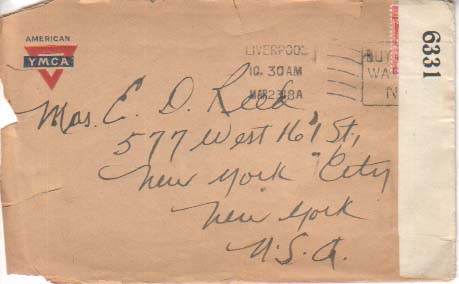 AMERICAN
YMCA
LIVERPOOL
10.30AM
MAR 23 18A
BUY
WA
N
6331
Mrs. E. D. Reed
577 West 161 St,
New York City
New York
U.S.A.